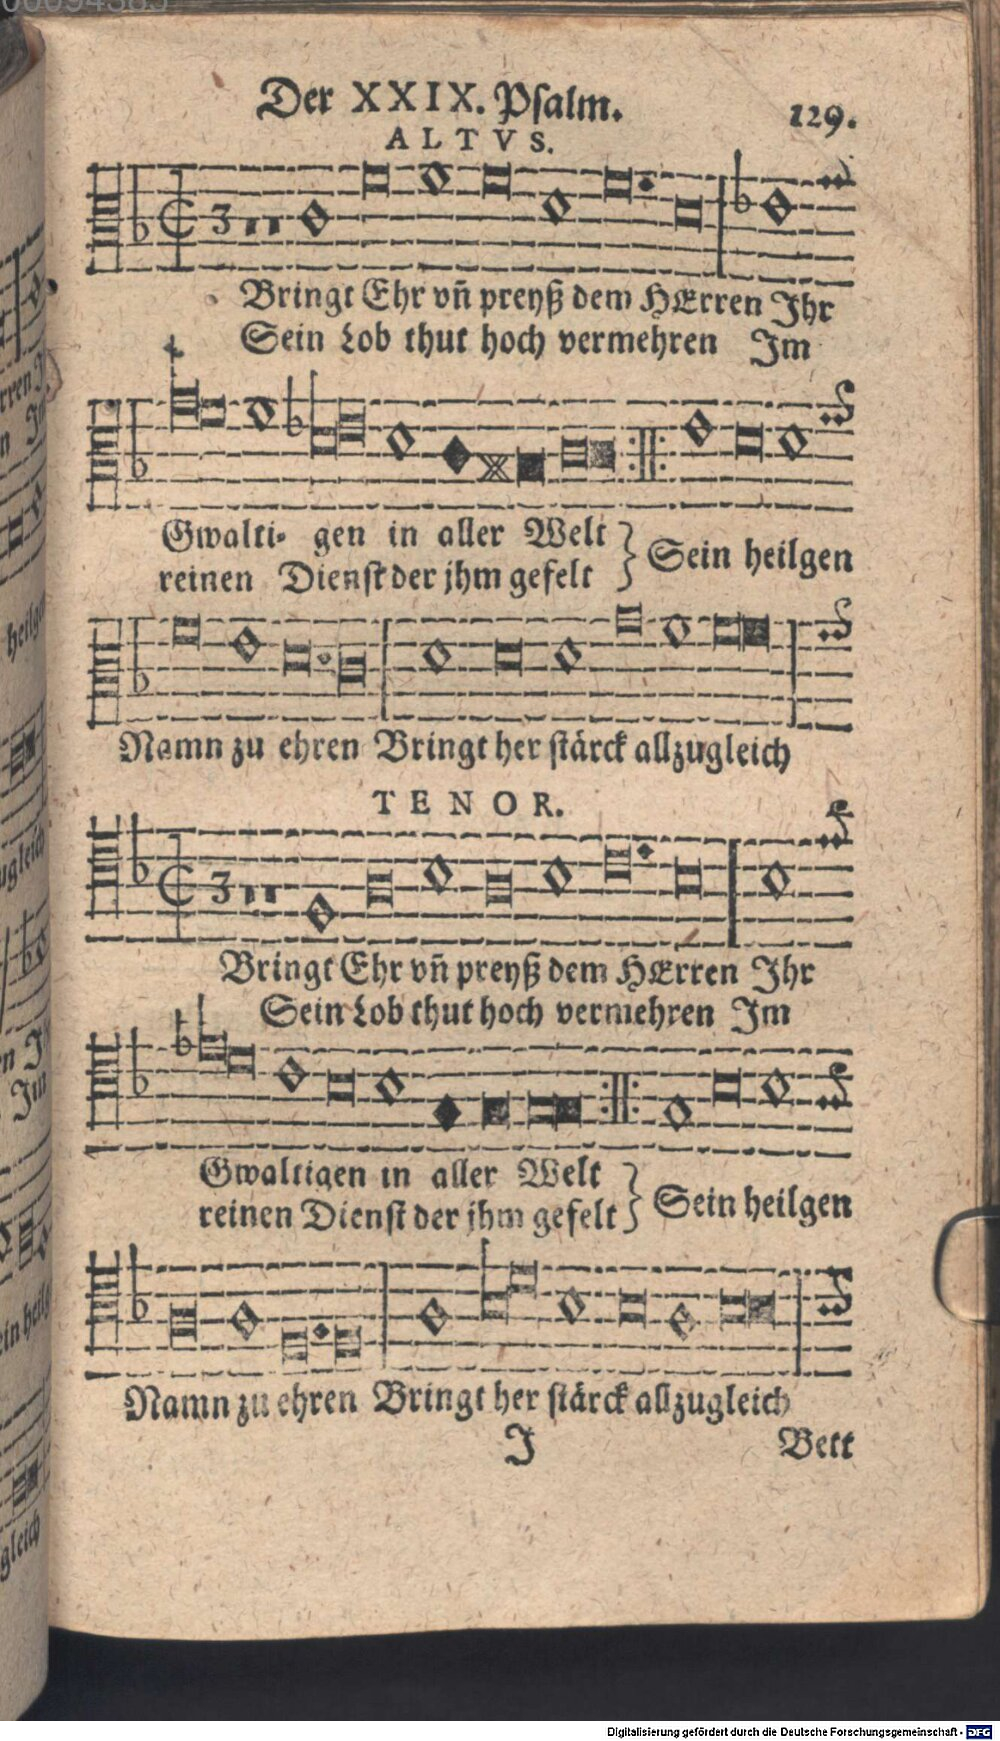 00094385
Der XXIX. Psalm. 129.
ALTVS.
Bringt Ehr vñ preyß dem HErren Jhr
Sein Lob thut hoch vermehren Jm
Gwalti- gen in aller Welt
reinen Dienst der jhm gefelt } Sein heilgen
Namn zu ehren Bringt her stärck allzugleich
TENOR.
Bringt Ehr vñ preyß dem HErren Jhr
Sein Lob thut hoch vermehren Jm
Gwaltigen in aller Welt
reinen Dienst der jhm gefelt } Sein heilgen
Namn zu ehren Bringt her stärck allzugleich
J Bett
Digitalisierung gefördert durch die Deutsche Forschungsgemeinschaft - DFG